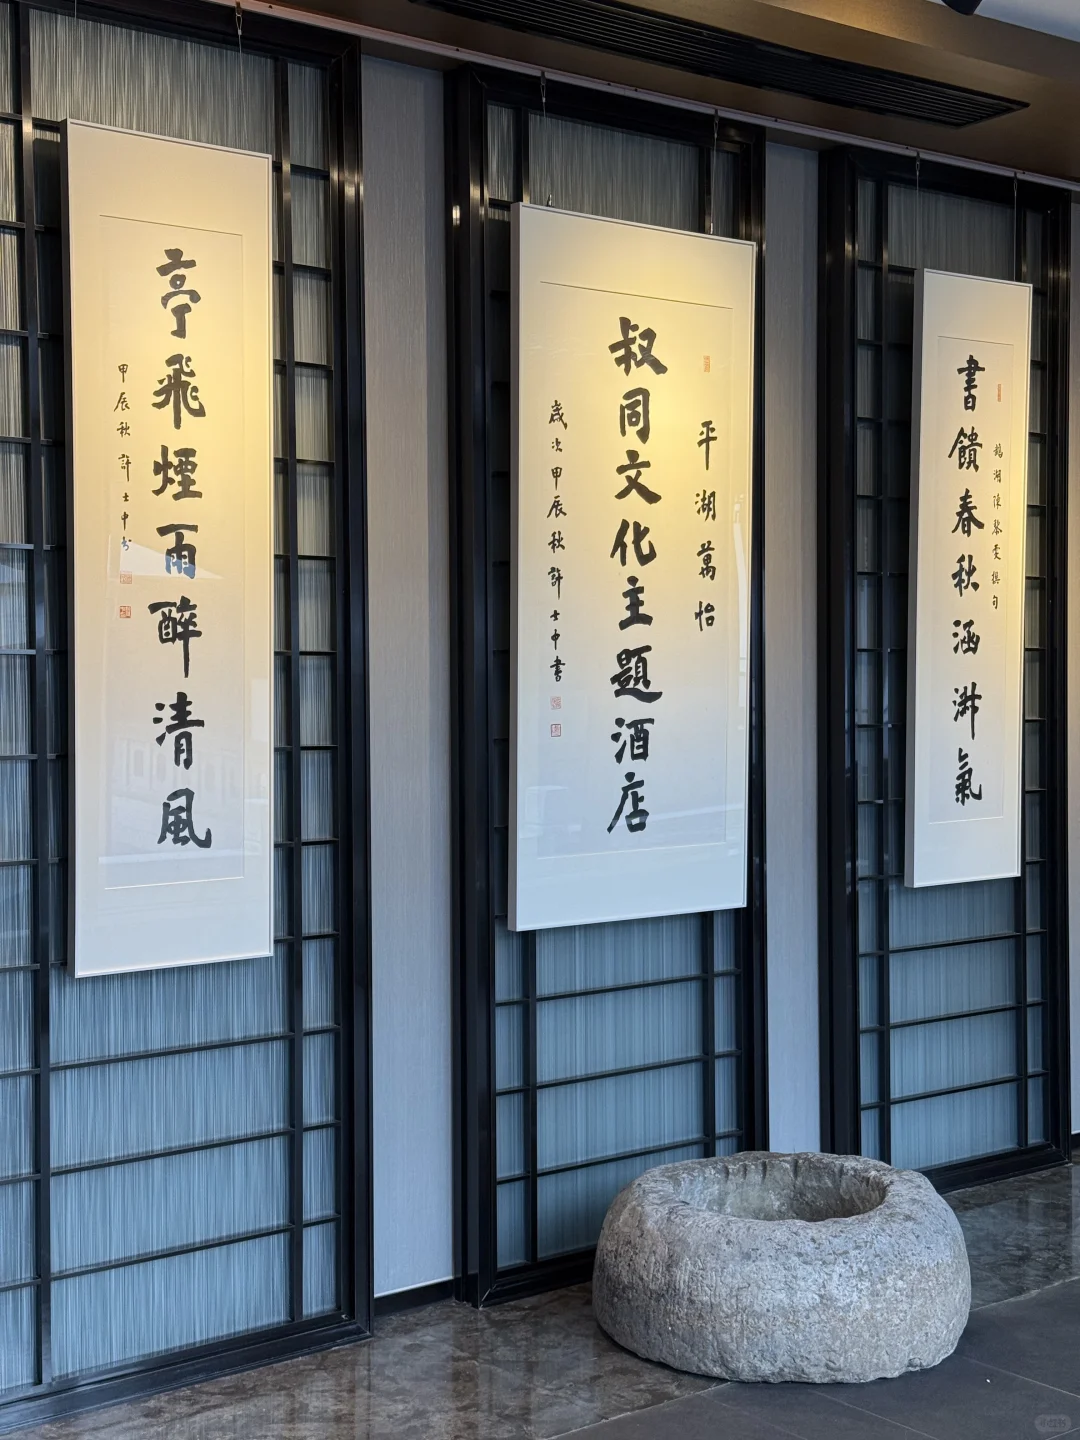 湖陳黎雯撰句
書饋春秋涵氣
平湖萬怡
叔同文化主題酒店
歲次甲辰秋許士中書
亭飛煙雨醉清風
甲辰秋許士中書